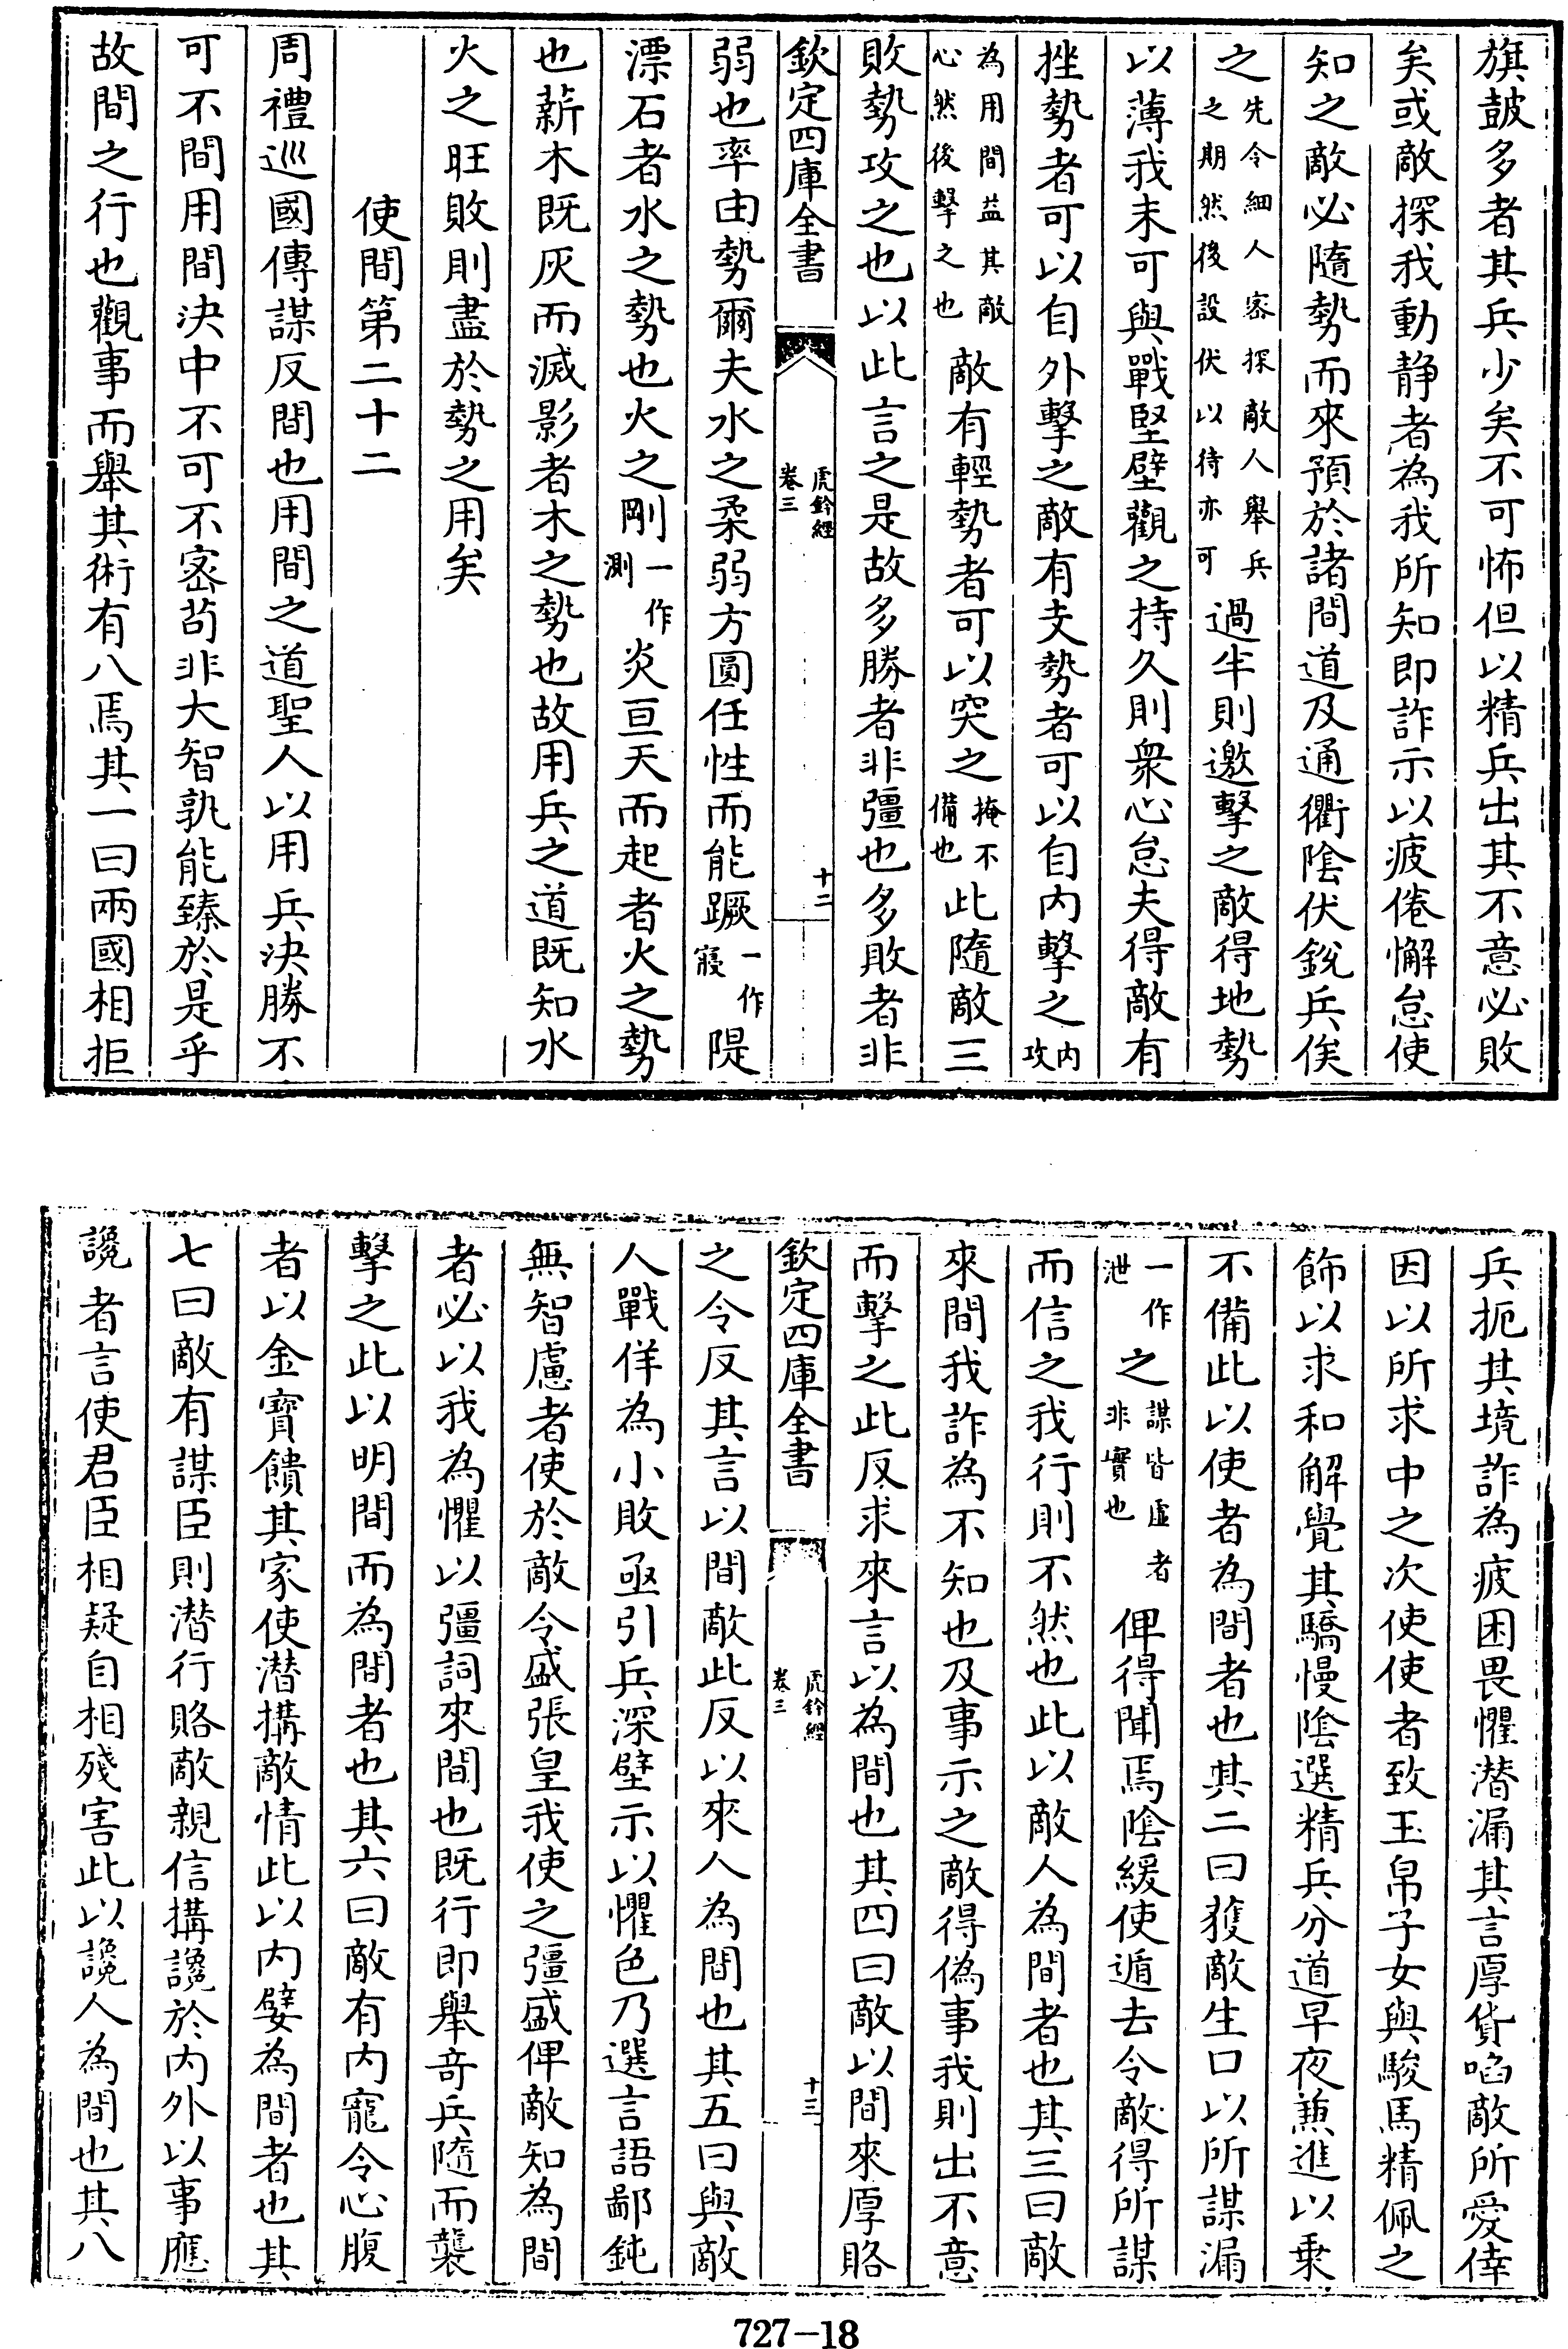 旗鼓多者其兵少矣不可怖但以精兵出其不意必敗
矣或敵探我動静者為我所知即詐示以疲倦懈怠使
知之敵必隨勢而來預於諸間道及通衢陰伏銳兵俟
之先令細人宻探敵人舉兵之期然後設伏以待亦可過半則邀擊之敵得地勢
以薄我未可與戰堅壁觀之持久則衆心怠夫得敵有
挫勢者可以自外擊之敵有支勢者可以自内擊之内攻
為用間益其敵心然後擊之也敵有輕勢者可以突之掩不備也此隨敵三
敗勢攻之也以此言之是故多勝者非彊也多敗者非
欽定四庫全書
虎鈐經
卷三
十二
弱也率由勢爾夫水之柔弱方圓任性而能蹶一作寖隄
漂石者水之勢也火之剛一作測炎亘天而起者火之勢
也薪木既灰而滅影者木之勢也故用兵之道既知水
火之旺敗則盡於勢之用矣
使間第二十二
周禮巡國傳謀反間也用間之道聖人以用兵決勝不
可不間用間決中不可不宻茍非大智孰能臻於是乎
故間之行也觀事而舉其術有八焉其一曰兩國相拒
兵扼其境詐為疲困畏懼潜漏其言厚貨啗敵所愛倖
因以所求中之次使使者致玉帛子女與駿馬精佩之
飾以求和解覺其驕慢陰選精兵分道早夜兼進以乗
不備此以使者為間者也其二曰獲敵生口以所謀漏
一作泄之謀皆虚者非實也俾得聞焉陰緩使遁去令敵得所謀
而信之我行則不然也此以敵人為間者也其三曰敵
來間我詐為不知也及事示之敵得偽事我則出不意
而擊之此反求來言以為間也其四曰敵以間來厚賂
欽定四庫全書
虎鈐經
卷三
十三
之令反其言以間敵此反以來人為間也其五曰與敵
人戰佯為小敗亟引兵深壁示以懼色乃選言語鄙鈍
無智慮者使於敵令盛張皇我使之彊盛俾敵知為間
者必以我為懼以彊詞來間也既行即舉竒兵隨而襲
擊之此以明間而為間者也其六曰敵有内寵令心腹
者以金寶饋其家使潜搆敵情此以内嬖為間者也其
七曰敵有謀臣則潜行賂敵親信搆讒於内外以事應
讒者言使君臣相疑自相殘害此以讒人為間也其八
727-18